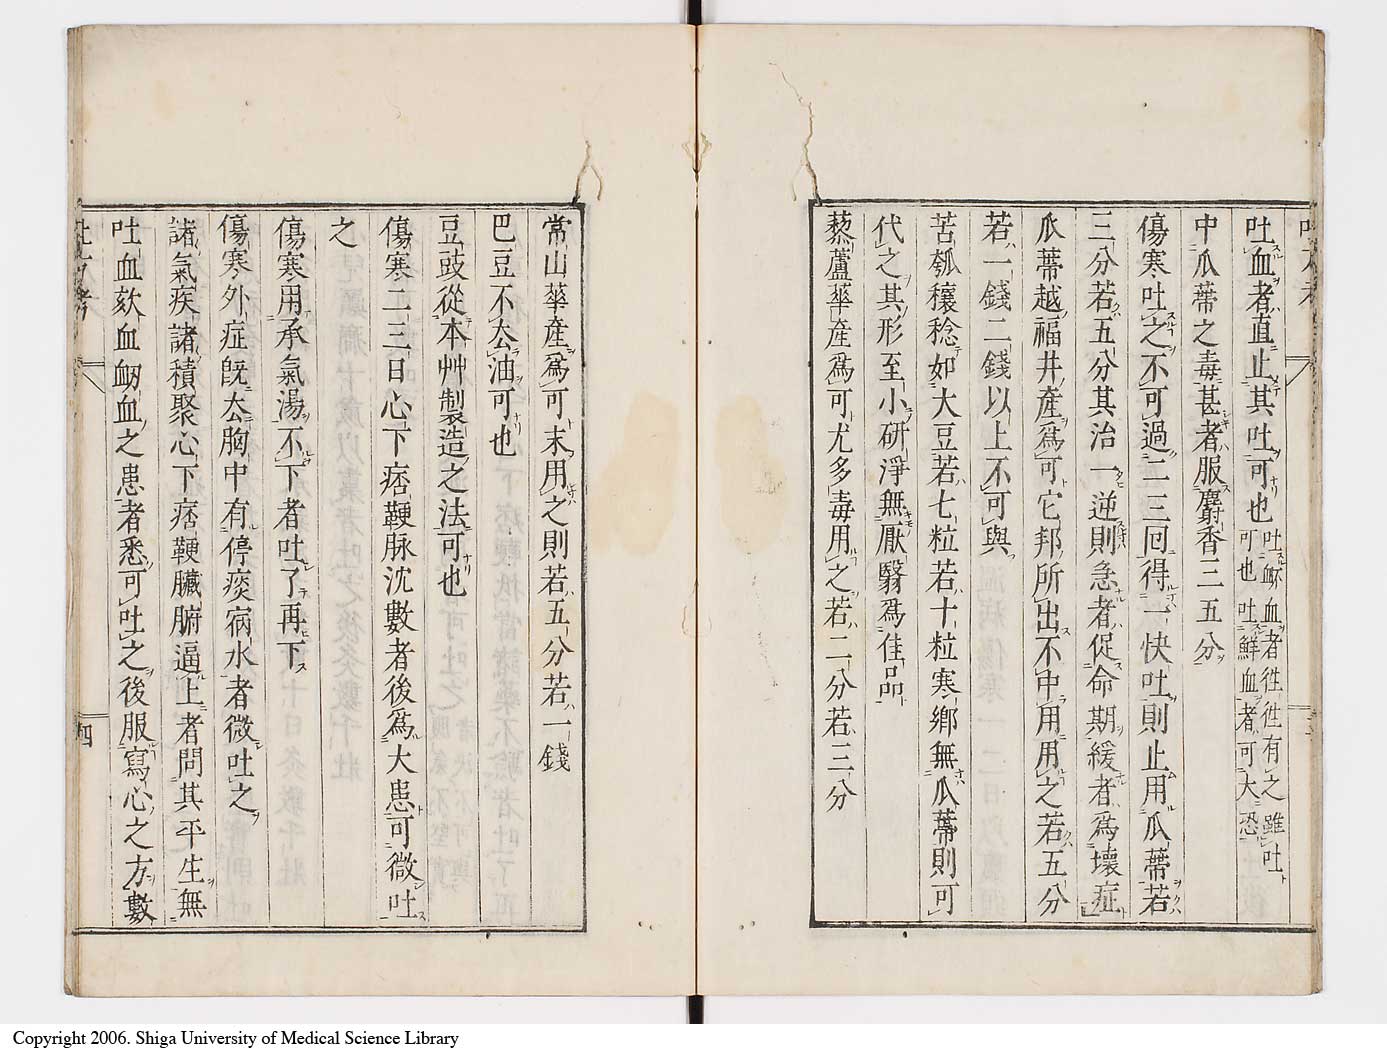 吐血者直止其吐可也吐衂血者徃徃有之雖吐
可也吐鮮血者可大恐
中瓜蔕之毒甚者服麝香三五分
傷寒吐之不可過二三囘得一快吐則止用瓜蔕若
三分若五分其治一逆則急者促命期緩者為壞症
瓜蔕越福井產為可它邦所出不中用用之若五分
若一錢二錢以上不可與
苦瓠穰稔如大豆若七粒若十粒寒鄉無瓜蔕則可
代之其形至小研淨無厭翳為佳品
藜蘆華產為可尤多毒用之若二分若三分
常山華產爲可末用之則若五分若一錢
巴豆不去油可也
豆豉從本艸製造之法可也
傷寒二三日心下痞鞕脉沈數者後爲大患可微吐
之
傷寒用承氣湯不下者吐了再下
傷寒外症既去胸中有停痰病水者微吐之
諸氣疾諸積聚心下痞鞕臟腑逼上者問其平生無
吐血欬血衂血之患者悉可吐之後服寫心之方數
四
Copyright 2006. Shiga University of Medical Science Library